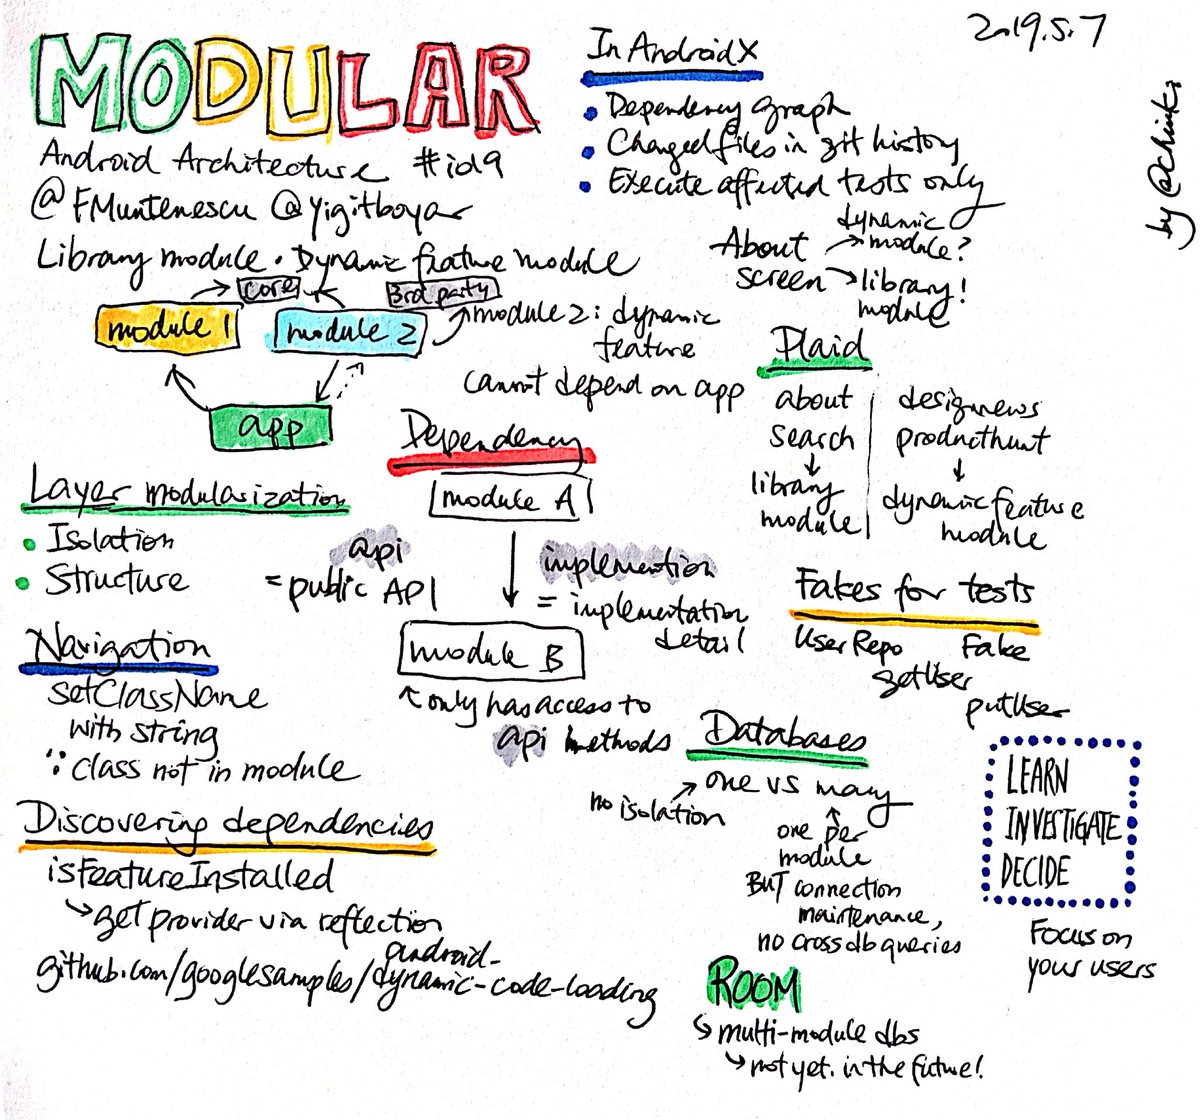 MODULAR
Android Architecture #io19
@FMuntenescu @yigitboyar
Library module · Dynamic feature module
core
3rd party
module 1
module 2
module 2: dynamic
feature
cannot depend on app
app
Layer modularization
Isolation
Structure
Navigation
setClassName
with string
∵ class not in module
Discovering dependencies
isFeatureInstalled
get provider via reflection
github.com/googlesamples/android-
dynamic-code-loading
Dependency
module A
api
= public API
implemention
= implementation
detail
module B
only has access to
api methods
In AndroidX
Dependency graph
Changed files in git history
Execute affected tests only
About
screen
dynamic
module?
library!
module
Plaid
about
search
library
module
designnews
producthunt
dynamic feature
module
Fakes for tests
UserRepo
Fake
getUser
putUser
Databases
one vs many
no isolation
one per
module
BUT connection
maintenance,
no cross db queries
ROOM
multi-module dbs
not yet. in the future!
LEARN
INVESTIGATE
DECIDE
Focus on
your users
2019.5.7
by @chiuki